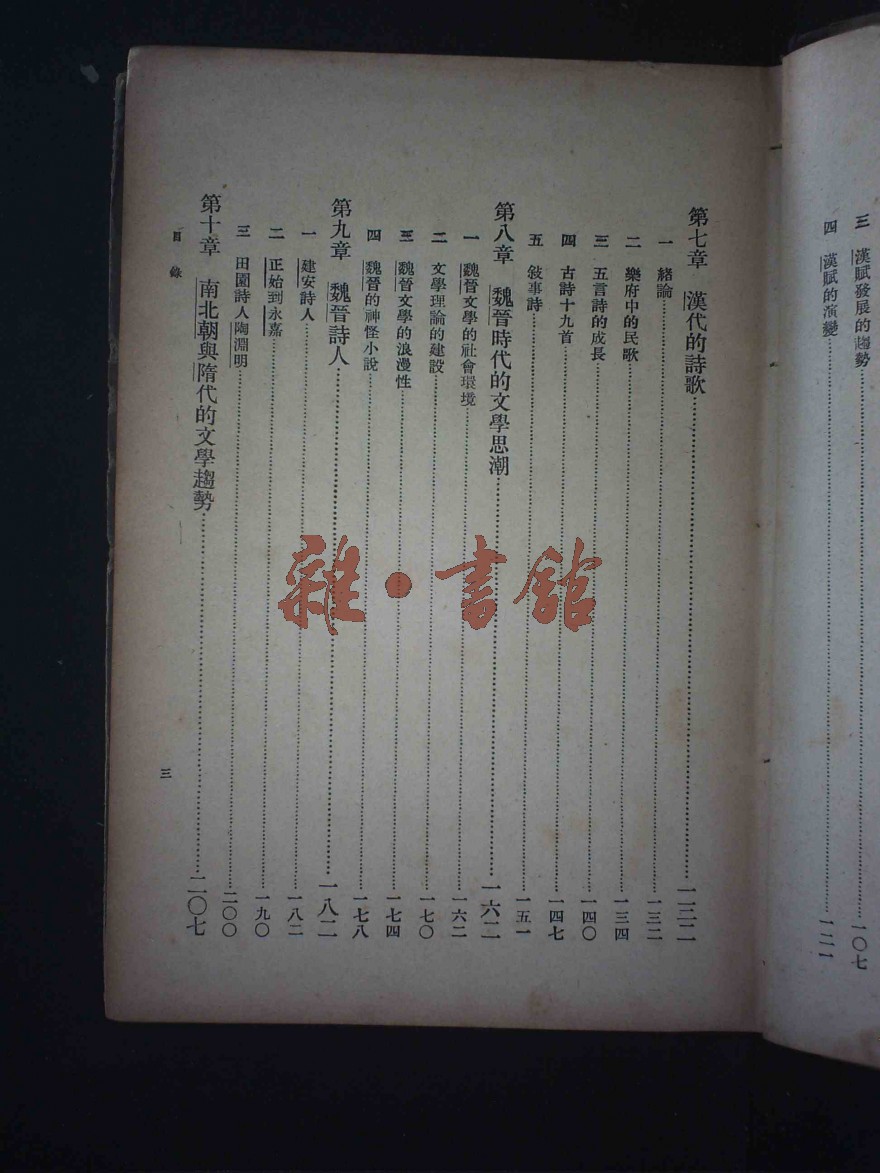 三　漢賦發展的趨勢……一〇七
四　漢賦的演變……一二一
第七章　漢代的詩歌……一三二
一　緒論……一三二
二　樂府中的民歌……一三四
三　五言詩的成長……一四〇
四　古詩十九首……一四七
五　敍事詩……一五一
第八章　魏晉時代的文學思潮……一六二
一　魏晉文學的社會環境……一六二
二　文學理論的建設……一七〇
三　魏晉文學的浪漫性……一七四
四　魏晉的神怪小說……一七八
第九章　魏晉詩人……一八二
一　建安詩人……一八二
二　正始到永嘉……一九〇
三　田園詩人陶淵明……二〇〇
第十章　南北朝與隋代的文學趨勢……二〇七
目錄
三
雜·書館